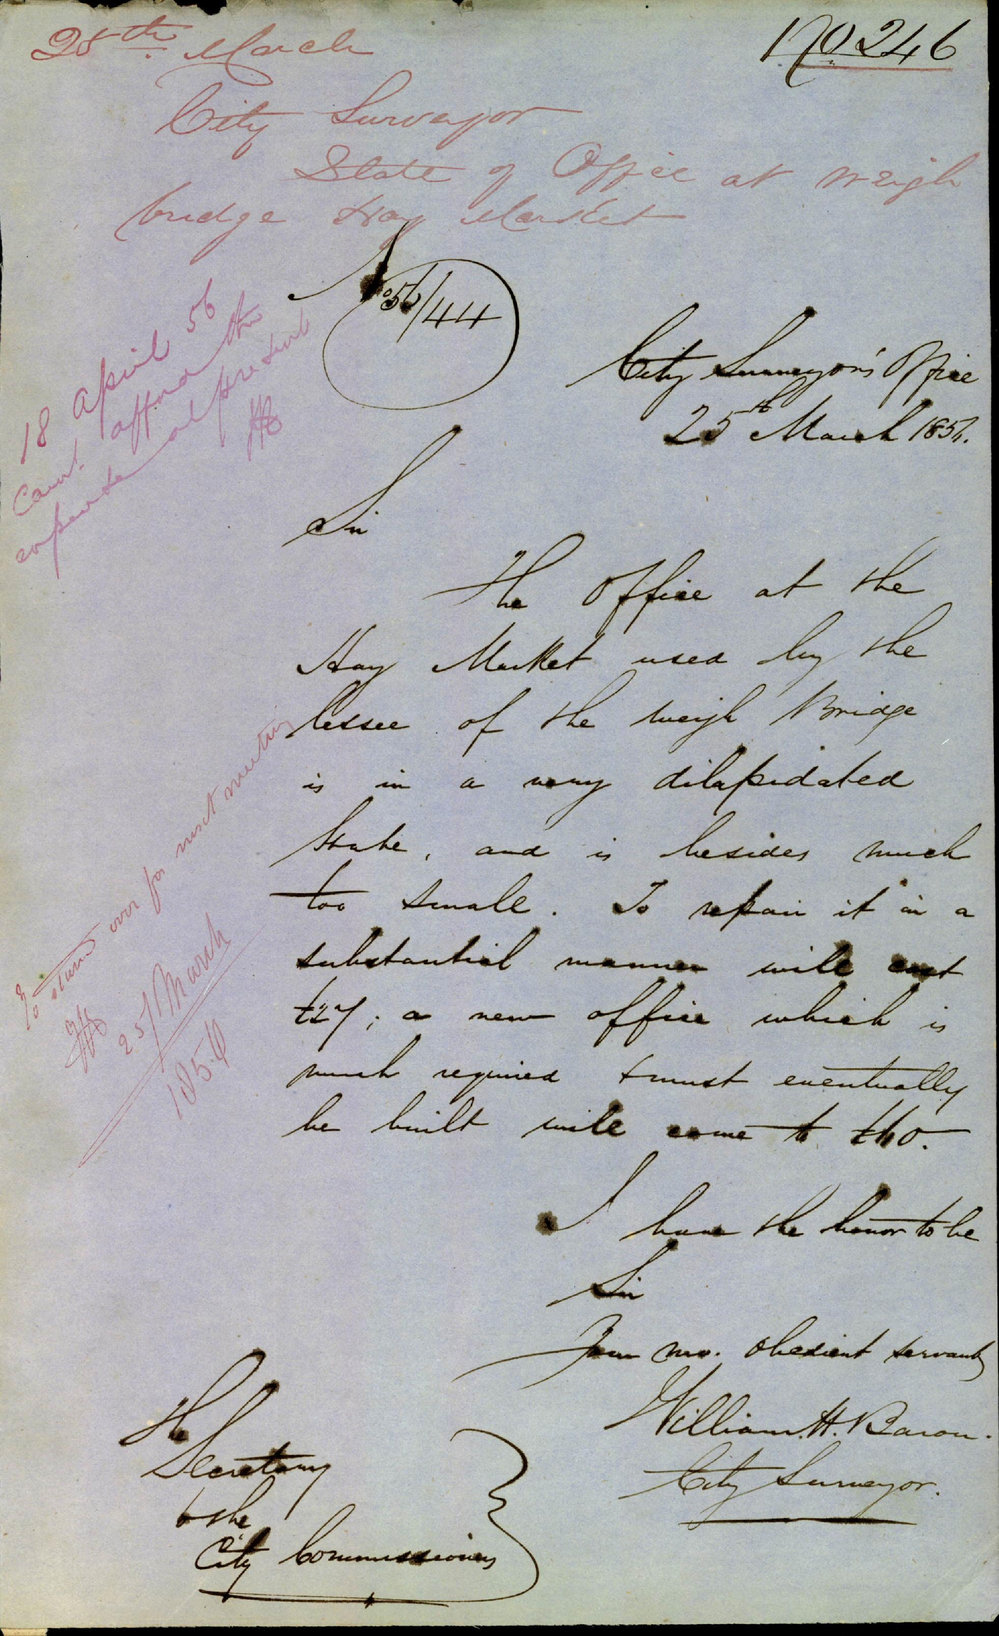 No 246
25th March
City Surveyor
State of Office at Weigh
bridge Hay Market
No 56/44
18 April 56
Cant afford the
expense at present
City Surveyor's Office
25th March 1856.
Sir
The Office at the
Hay Market used by the
lessee of the Weigh Bridge
is in a very dilapidated
State, and is besides much
too small. To repair it in a
substantial manner will cost
£27; a new office which is
much required & must eventually
be built will come to £60.
To stand over for next meeting
25/March
1856
I have the honor to be
Sir
Your mo. obedient servant
William H. Baron.
City Surveyor.
The
Secretary
to the
City Commissioners